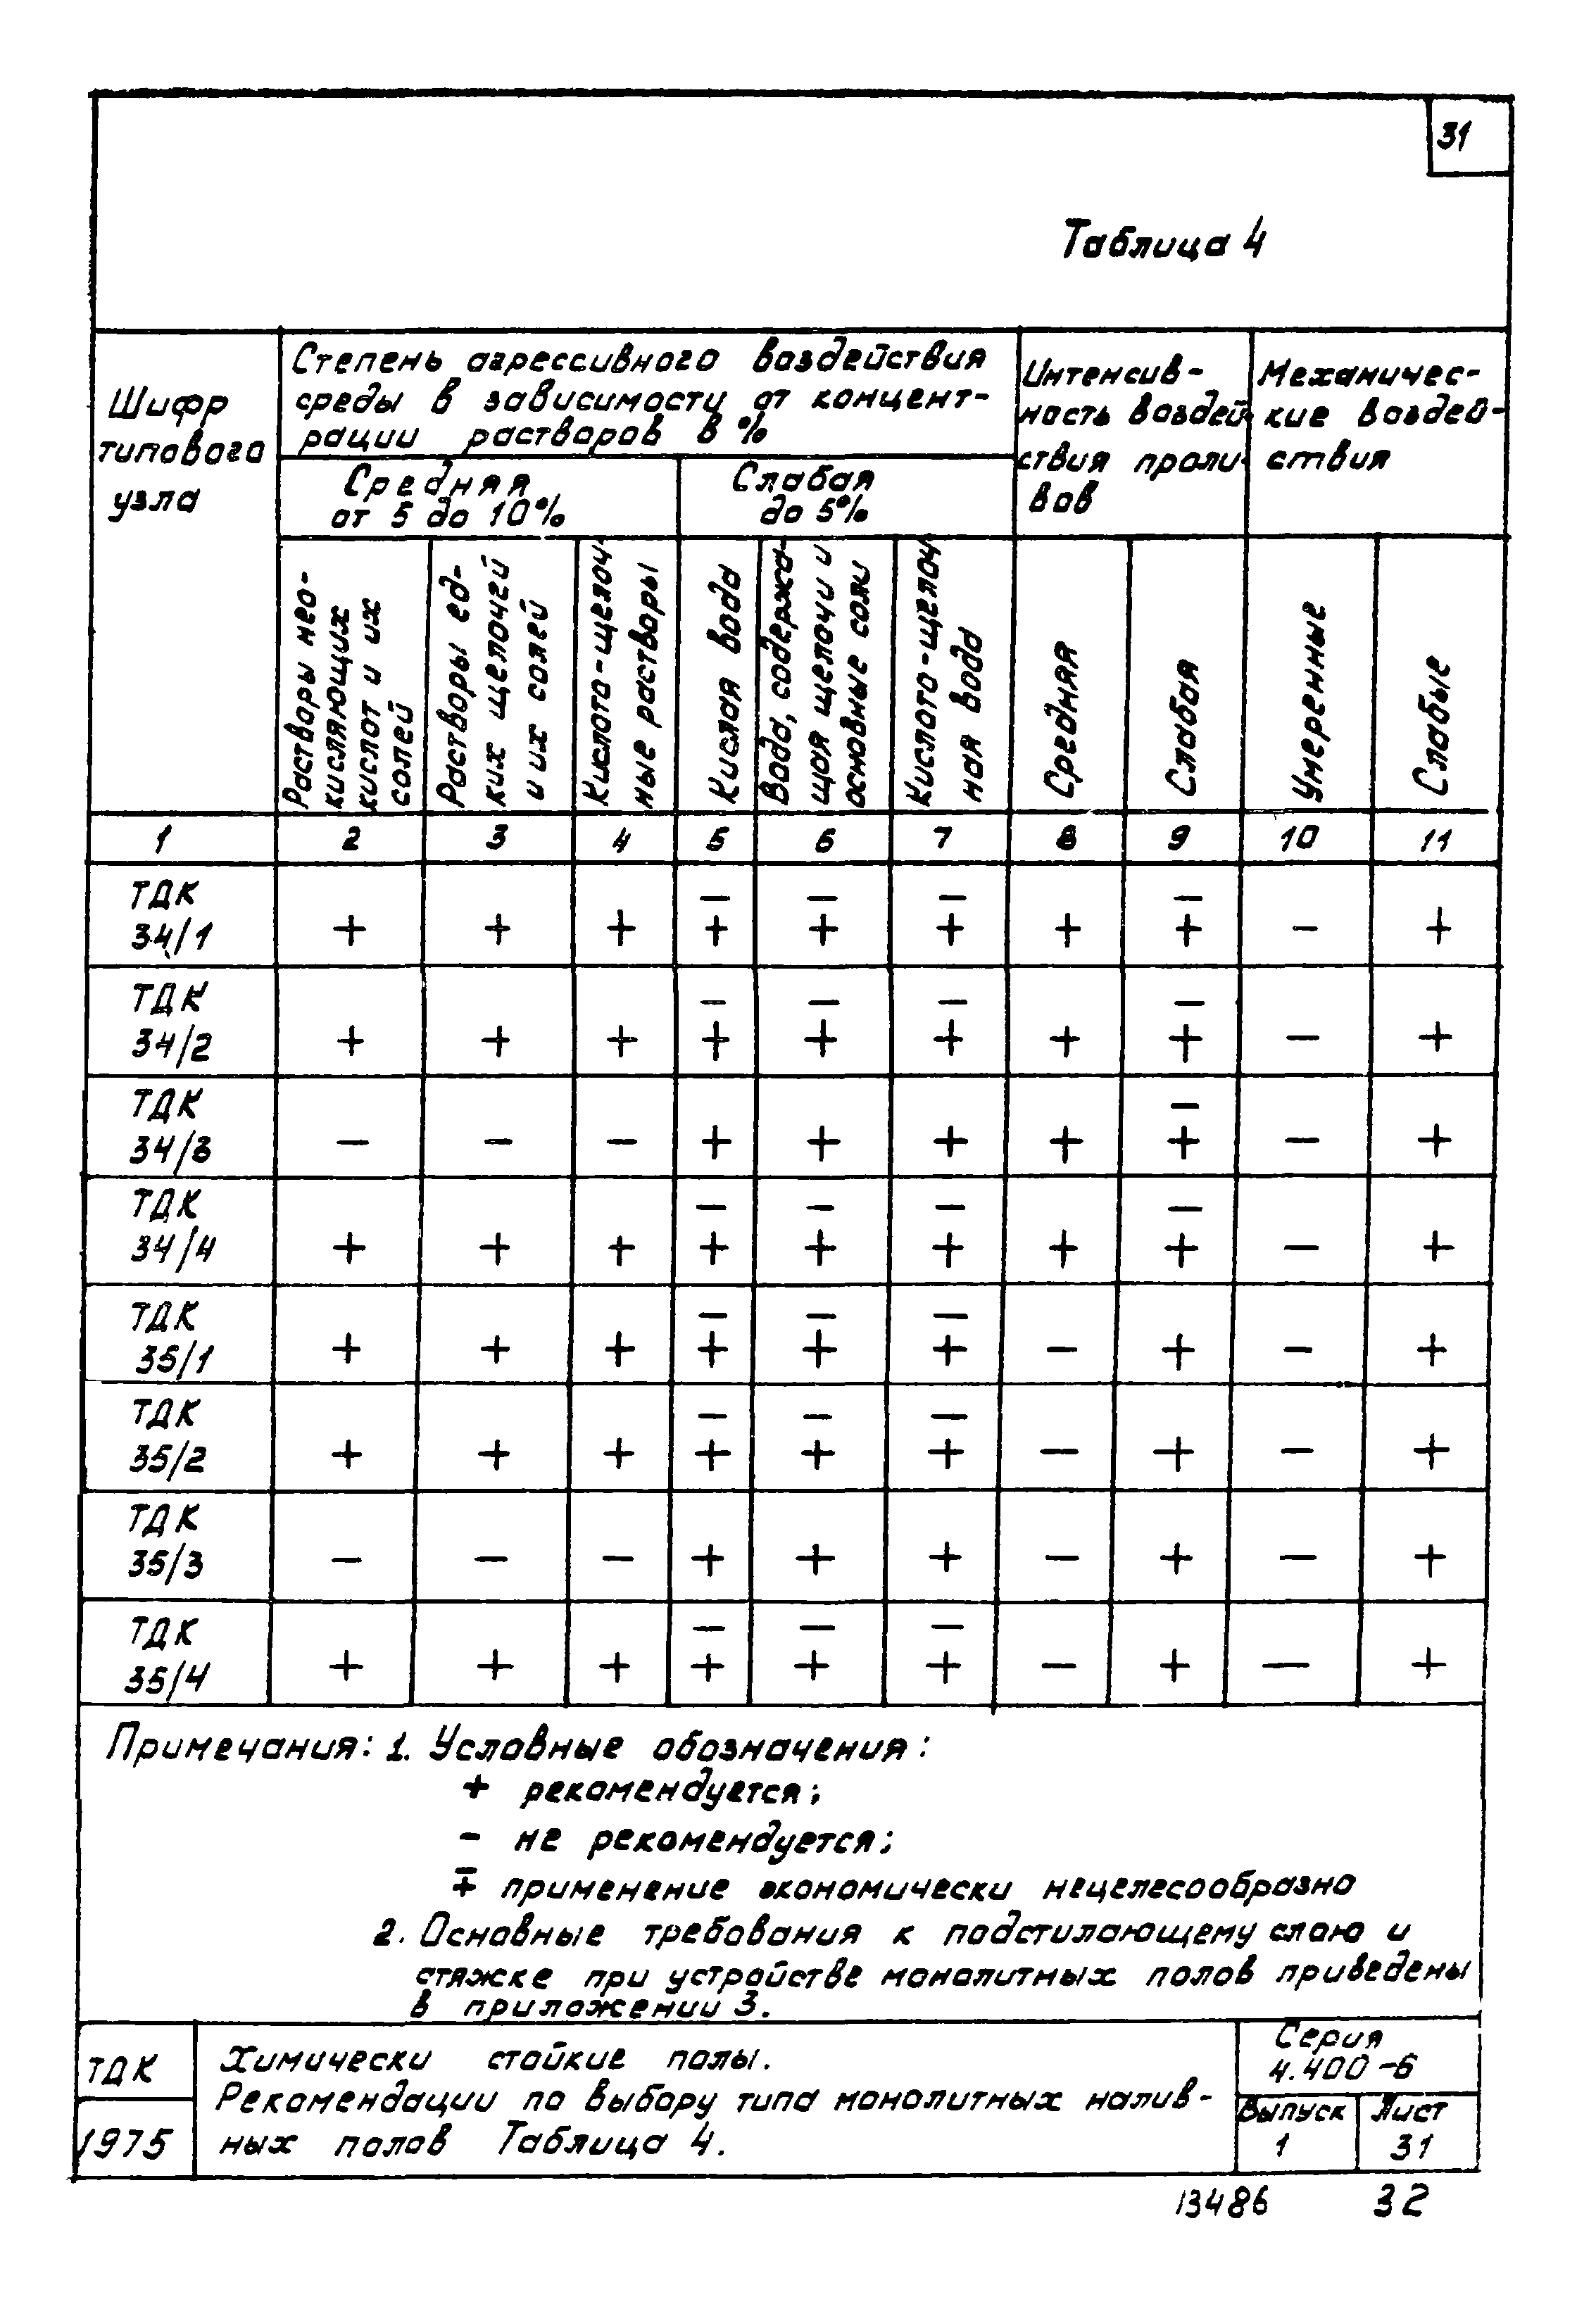 31
Таблица 4
Шифр
типового
узла
Степень агрессивного воздействия
среды в зависимости от концент-
рации растворов в %
Интенсив-
ность воздей
ствия проли-
вов
Механичес-
кие воздей-
ствия
Средняя
от 5 до 10%
Слабая
до 5%
Растворы нео-
кисляющих
кислот и их
солей
Растворы ед-
ких щелочей
и их солей
Кислото-щелоч-
ные растворы
Кислая вода
Вода, содержа-
щая щелочи и
основные соли
Кислото-щелоч-
ная вода
Средняя
Слабая
Умеренные
Слабые
1 2 3 4 5 6 7 8 9 10 11
ТДК − − − −
34/1 + + + + + + + + − +
ТДК − − − −
34/2 + + + + + + + + − +
ТДК −
34/3 − − − + + + + + − +
ТДК − − − −
34/4 + + + + + + + + − +
ТДК − − −
35/1 + + + + + + − + − +
ТДК − − −
35/2 + + + + + + − + − +
ТДК
35/3 − − − + + + − + − +
ТДК − − −
35/4 + + + + + + − + − +
Примечания: 1. Условные обозначения:
+ рекомендуется;
− не рекомендуется;
∓ применение экономически нецелесообразно
2. Основные требования к подстилающему слою и
стяжке при устройстве монолитных полов приведены
в приложении 3.
ТДК
1975
Химически стойкие полы.
Рекомендации по выбору типа монолитных налив-
ных полов Таблица 4.
Серия
4.400-6
Выпуск
1
Лист
31
13486 32